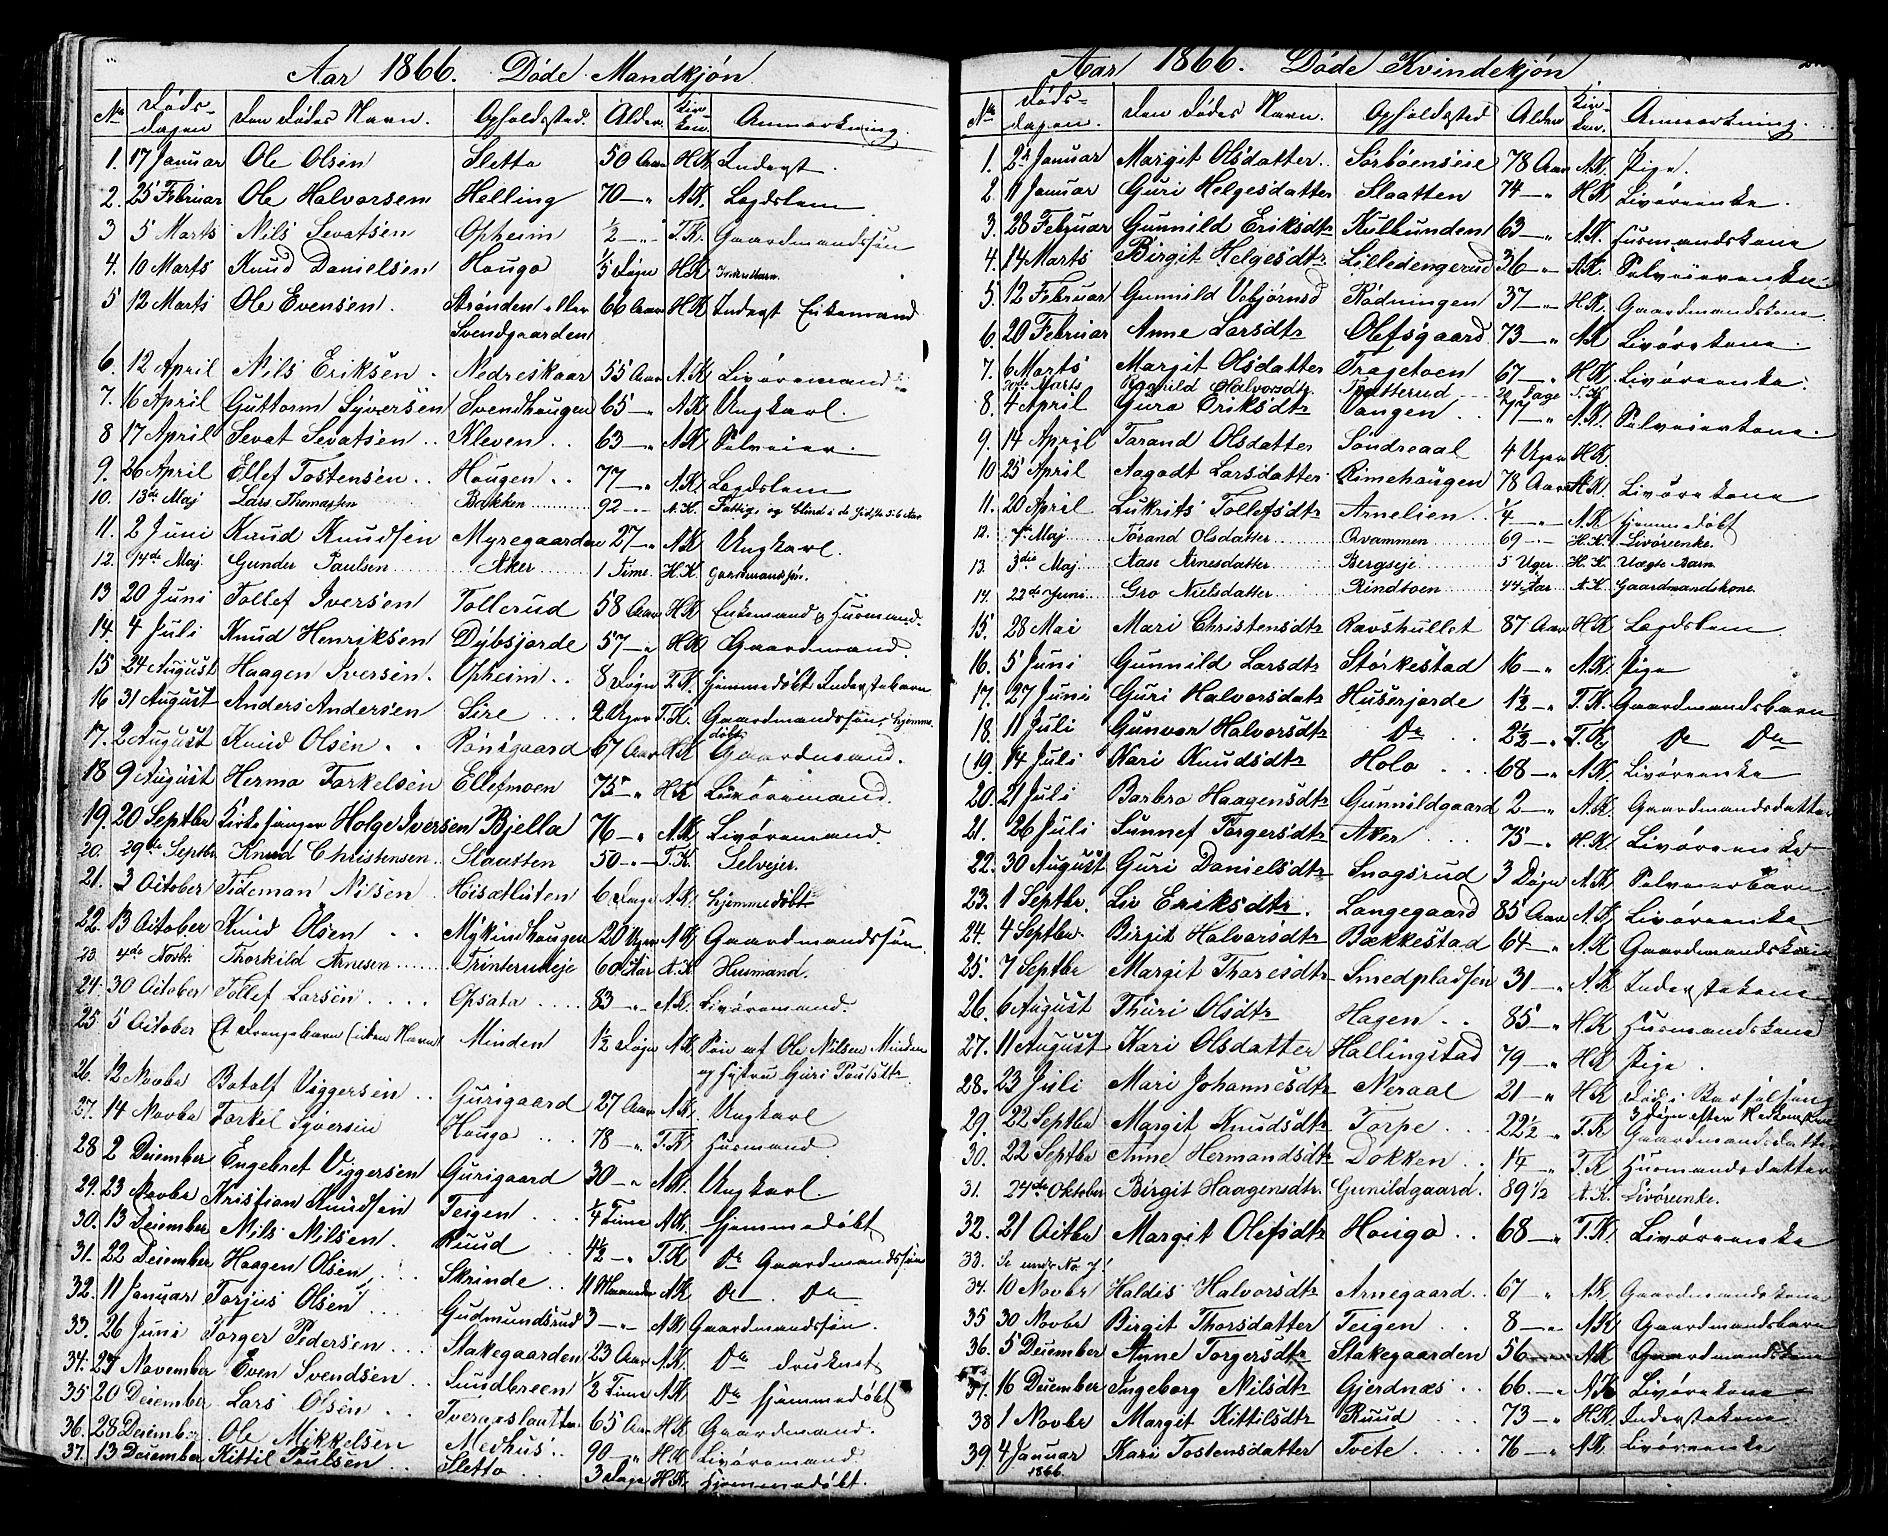 Aar 1866. Døde Mandkjøn.
No Døds-dagen Den Dødes Navn. Opholdssted. Alder. Kirken. Anmærkning.
1. 17 Januar Ole Olsen Sletto 50 Aar H.K. Inderst.
2. 25 Februar Ole Halvorsen Helling 70 – „ A.K. Lægdslem.
3 5 Marts Nils Sevatsen Opheim ½ – „ T.K. Gaardmandssøn
4. 10 Marts Knud Danielsen Haugo ½ Døgn H.K.
5 12 Marts Ole Evensen. Strønden eller 66 Aar H.K. Inderst Enkemand
Svendgaarden
6. 12 April Nils Eriksen. Nedreskaar 55 Aar A.K. Livøremand
7. 16 April Guttorm Syversen Svendhaugen 65 – „ A.K. Ungkarl.
8 17 April Sevat Sevatsen .. Kleven .. 63 – „ A.K. Selveier.
9. 26 April Ellef Tostensen .. Haugen .. 77 – „ A.K. Lægdslem
10. 13de Maj Lars Thomassen Bakken 92 – „ A.K. Fattig og blind i de sidste 5-6 Aar
11. 2 Juni Knud Knudsen Myregaarden 27 – „ A.K. Ungkarl.
12. 14de Maj Gunder Paulsen Aker 1 Time H.K. Gaardmandssøn.
13 20 Juni Tollef Iversen Tollerud 58 Aar H.K. Enkemand & Husmand.
14. 4 Juli Knud Henriksen Dybsjorde 57 – „ H.K. Gaardmand
15 24 August Haagen Iversen. Opheim .. 8 Døgn T.K. hjemmedøbt Inderstebarn
16 31 August Anders Andersen Sire ... 2 Uger T.K. Gaardmandssøn, hjemme-
døbt
17. 2 August Knud Olsen .. Rønsgaard 67 Aar H.K. Gaardmand.
18 9 August Hermo Torkelsen Ellefmoen 75 – „ H.K. Livøremand.
19. 20 Septbr Kirkesanger Holge Iversen Bjella 76 – „ A.K. Livøremand.
20. 29de Septbr Knud Christensen. Slaatten 50 – „ T.K. Selvejer.
21. 3 October Tideman Nilsen Høisætlisten 6 Dage A.K. hjemmedøbt
22. 13 October Knud Olsen .. Mykindhaugen 20 Uger A.K. Gaardmandssøn
23. 4de Novbr. Thorkild Arnesen Trinterudeje 60 Aar A.K. Husmand.
24. 30 October Tollef Larsen .... Opsata .... 83 – „ A.K. Livøremand.
25. 5 October Et Drengebarn (uden Navn) Minden ½ Døgn A.K. Søn af Ole Nilsen Minden
og Hustru Guri Poulsdtr
26. 12 Novbr Botolf Viggersen .. Gurigaard 27 Aar A.K. Ungkarl
27. 14 Novbr Torkel Syversen Haugo ... 78 – „ T.K. Husmand.
28 2 December Engebret Viggersen Gurigaard 30 – „ A.K. Ungkarl.
29. 23 Novbr Kristian Knudsen Teigen ... ¼ Time A.K. hjemmedøbt
30. 13 December Nils Nilsen. Ruud ... 4½ – „ T.K. Do Gaardmandssøn
31. 22 December Haagen Olsen .... Skrinde .. 11 Maaneder A.K. Do. Do.
32. 11 Januar Torjus Olsen .... Gudmundsrud 3 – „ A.K. Gaardmandssøn.
33. 26 Juni Torger Pedersen . Stakegaarden 23 Aar A.K. Do druknet
34. 23 November Even Svendsen .. Sundbreen ½ Time A.K. Do hjemmedøbt
35 20 December Lars Olsen .. 65 Aar H.K. Gaardmand.
36. 28 December. Ole Mikkelsen Medhus .. 90 – „ H.K. Livøremand.
37. 13 December Kittil Poulsen .. Sletto .. 3 Dage H.K. hjemmedøbt.
Aar 1866. Døde Kvindekjøn
No Døds-dagen. Den Dødes Navn. Opholdssted Alder Kirken. Anmærkning.
1. 2d Januar Margit Olsdatter. Sørbøenseie 78 Aar A.K. Pige.
2. 11 Januar Guri Helgesdatter Slaatten 74 – „ H.K. Livøreenke.
3. 28 Februar Gunnild Eriksdtr Kulbunden 63 – „ A.K. Husmandskone
4. 14 Marts Birgit Helgesdtr. Lilledengerud 36 – „ A.K. Selveierenke
5. 12 Februar Gunnild Vebjørnsd Rødningen 37 – „ H.K. Gaardmandskone
6. 20 Februar Anne Larsdtr Olefsgaard 73 – „ A.K. Livørekone.
7. 6 Marts Margit Olsdatter Trageteen 67 – „ H.K. Livøreenke.
Marts Ragnhild Halvorsdtr. Tratterud Dage T.K.
8. 4 April Guro Eriksdtr Vangen .. 77 – „ A.K. Selveierkone.
9. 14 April Tarand Olsdatter Søndreaal 4 Uger H.K.
10 25 April Aagodt Larsdatter Rimehaugen 78 Aar A.K. Livørekone
11. 20 April Lukrits Tollefsdtr Arnelien .. ¼ – „ A.K. hjemmedøbt
12. 7de Maj Tørand Olsdatter Qvammen 69 – „ H.K. Livøreenke.
13. 3die Maj Aase Arnesdatter Bergseje 5 Uger H.K. Uægte Barn
14. 22de Juni Gro Nielsdatter Rindtoen 44 Aar A.K. Gaardmandskone.
15. 28 Mai Mari Christensdtr Ravshullet 87 Aar H.K. Lægdslem.
16. 5 Juni Gunnild Larsdtr Størkestad 16 – „ A.K. Pige
17. 27 Juni Guri Halvorsdatr Huserjorde 1½ – „ T.K. Gaardmandsbarn
18. 11 Juli Gunvor Halvorsdtr Do .. 2½ – „ T.K. Do Do
(19. 14 Juli Kari Knudsdtr Holo .. 68 – „ A.K. Livøreenke
20. 21 Juli Barbro Haagensdtr Gunnildgaard 2 – „ A.K. Gaardmandsdatter
21. 26 Juli Sunnef Torgersdtr Aker .. 75 – „ H.K. Livøreenke
22. 30 August Guri Danielsdtr Snogsrud 3 Døgn A.K. Selveierbarn
23. 1 Septbr. Liv Eriksdtr. Langegaard 85 Aar A.K. Livøreenke
24. 4 Septbr. Birgit Halvorsdtr Bækkestad 64 – „ A.K. Gaardmandskone
25. 7 Septbr Margit Tharesdtr Smedpladsen 31 – „ A.K. Inderstekone
26. 6 August Thuri Olsdtr Hagen .. 85 – „ H.K. Husmandskone
27. 11 August Kari Olsdatter Hallingstad 79 – „ H.K. Pige.
28. 23 Juli Mari Johannesdtr Neraal 21 – „ H.K. Død i Barselseng
3 Dage efter Nedkomsten
29. 22 Septbr Margit Knudsdtr Torpe . 22½ – „ T.K. Gaardmandsdatter
30. 22 Septbr Anne Hermandsdtr Døkken .. 14 – „ T.K. Husmandsdatter
31. 24de Oktober Birgit Haagensdtr. Gunildgaard. 89½ A.K. Livøreenke.
32. 21 Octbr Margit Olefsdtr Haugo .. 68 – „ T.K. Livøreenke
33. Se under No. 7!
34. 10 Novbr Haldis Halvorsdtr Arnegaard .. 67 – „ A.K. Gaardmandskone
35 30 Novbr Birgit Thorsdatter Teigen .. 8 – „ A.K. Gaardmandsbarn
36. 5 December Anne Torgersdtr Stakegaarden 56 – „ A.K. Gaardmandskone
37. 16 December Ingeborg Nilsdtr Gjerdnæs .. 66. – „ A.K. Livørekone
38 1 Novbr Margit Kittilsdtr Ruud .... 73 – „ H.K. Inderstekone
39 4 Januar Kari Tostensdatter Tvete .... 76 – „ A.K. Livøreenke
1866.